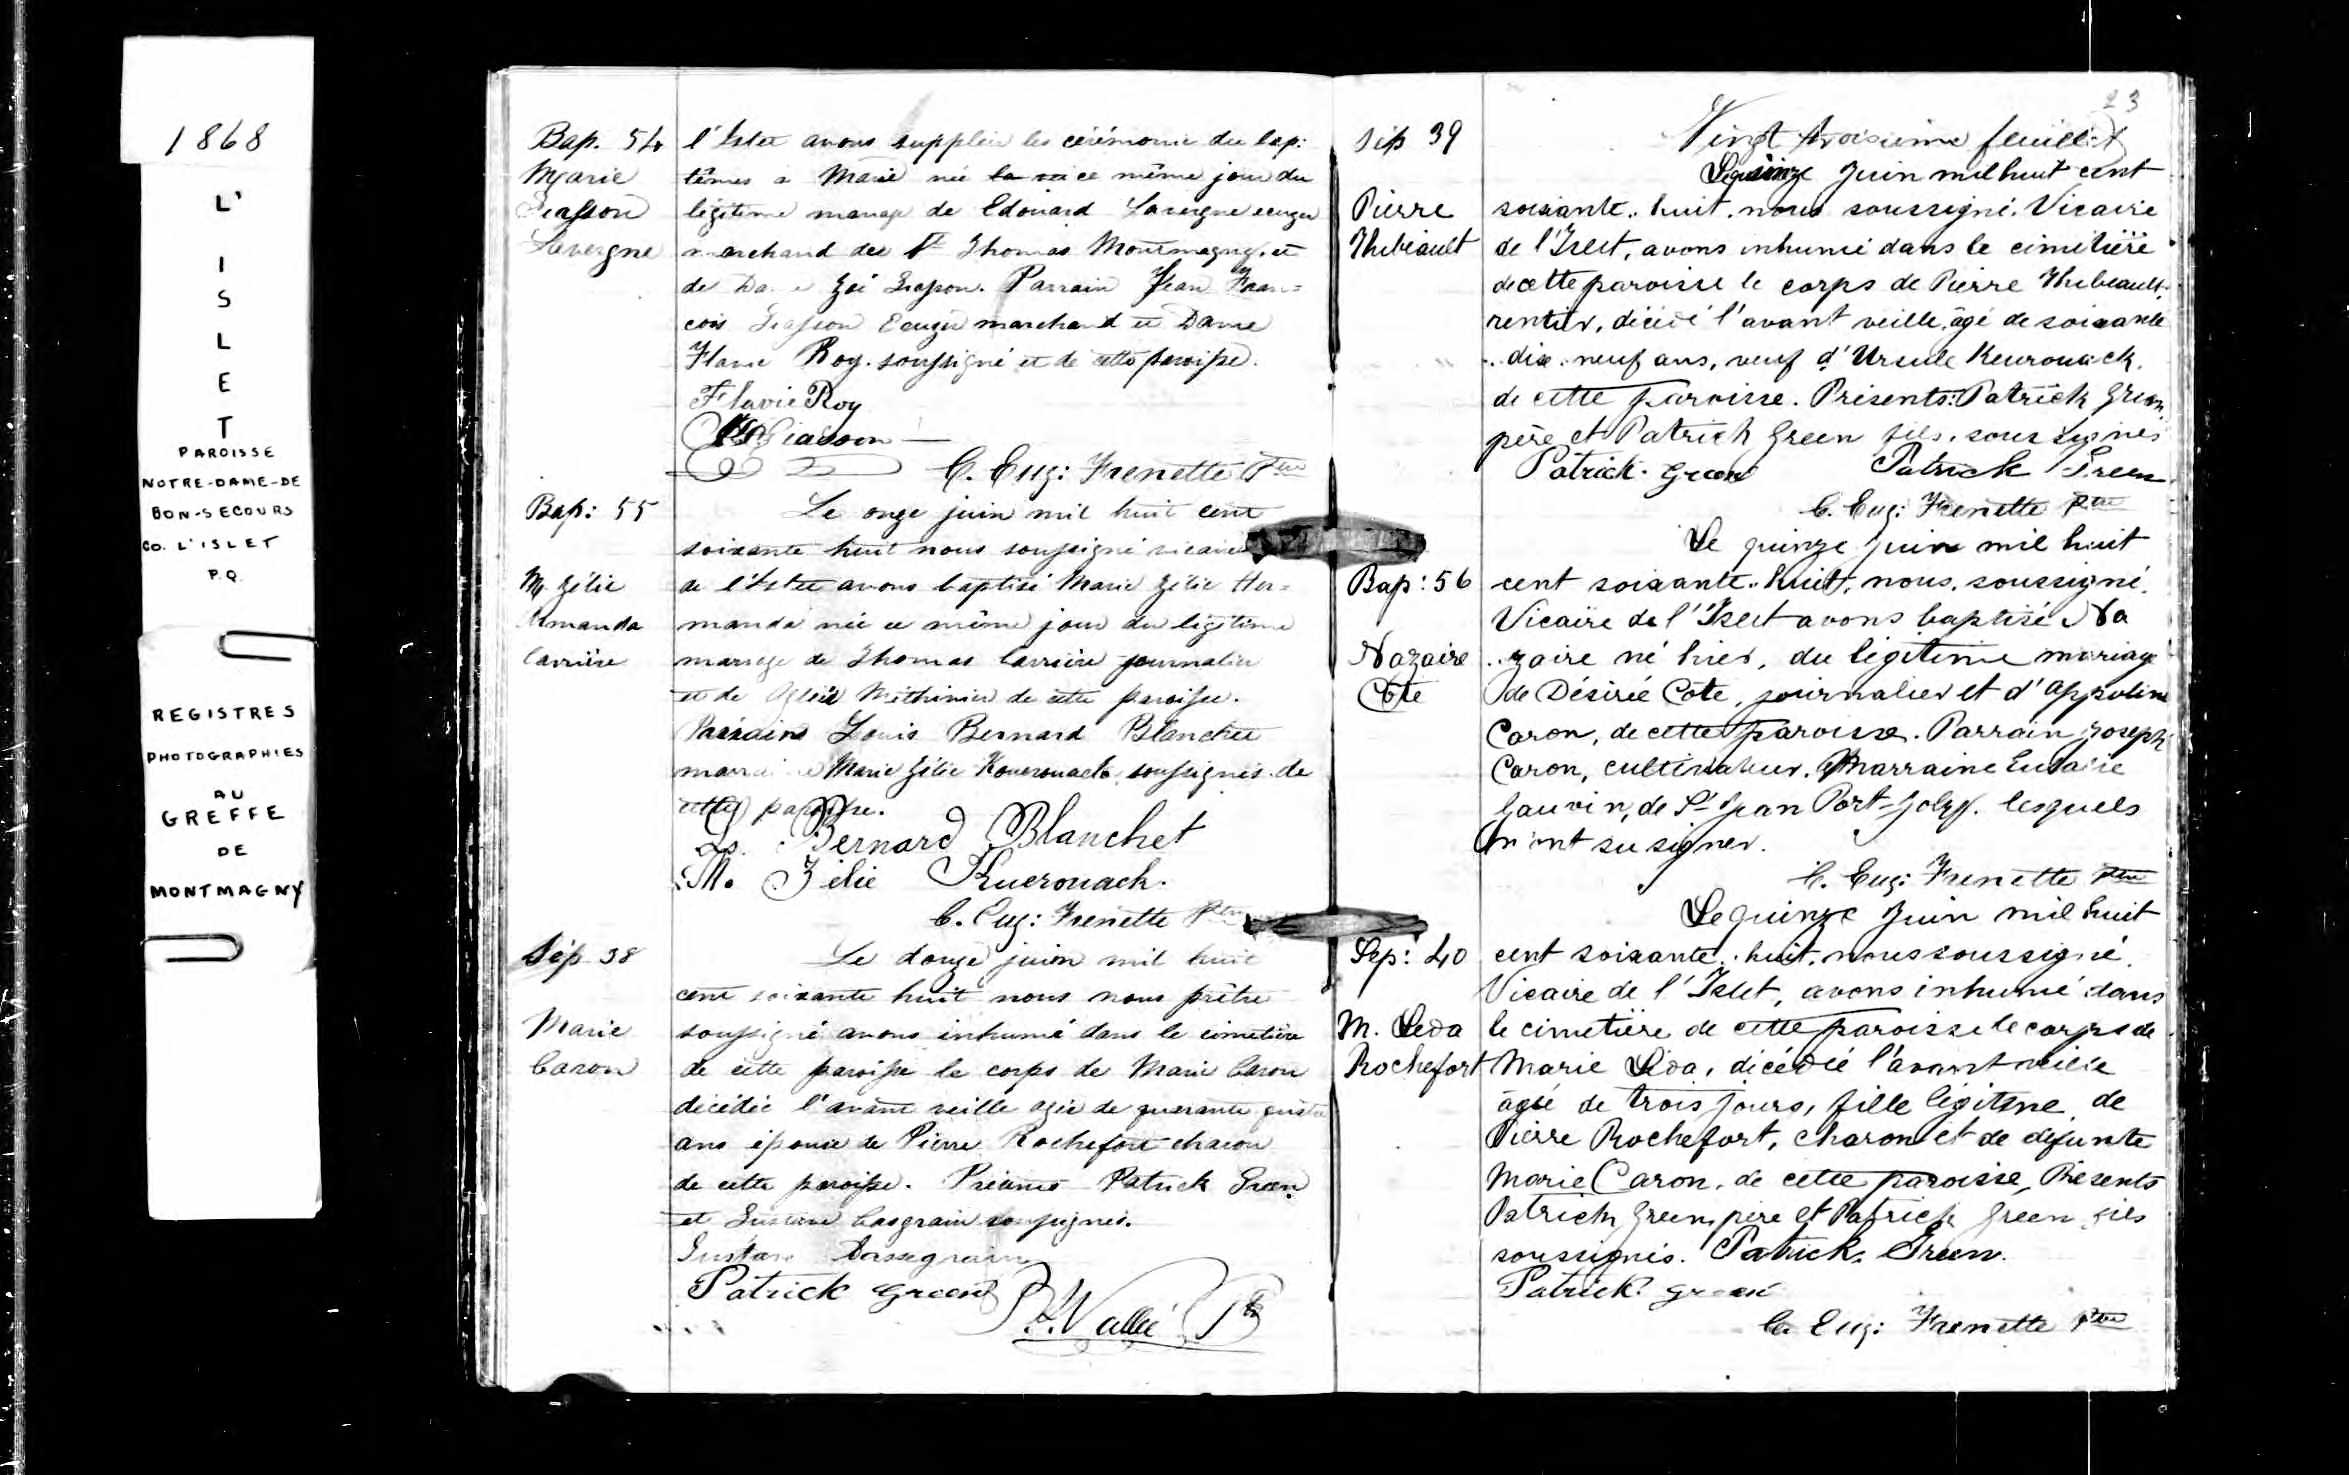 1868
L'
I
S
L
E
T
PAROISSE
NOTRE-DAME-DE
BON-SECOURS
CO. L'ISLET
P.Q.
REGISTRES
PHOTOGRAPHIES
AU
GREFFE
DE
MONTMAGNY
Bap. 54
Marie
Giasson
Lavergne
l'Islet avons supplée les cérémonie du bap:
têmes a Marie née ce même jour du
légitime mariage de Edouard Lavergne ecuyer
marchand de St Thomas Montmagny. et
de Zoé Giasson. Parrain Jean Fran=
cois Giasson Ecuyer marchand et Dame
Flavie Roy. soussigné et de cette paroisse.
Flavie Roy
Giasson
C. Eug: Frenette Ptre
Bap: 55
M. Zélie
Armanda
Carrière
Le onze juin mil huit cent
soixante huit nous soussigné vicaire
de l'Islet avons baptisé Marie Zélie
manda née ce même jour du légitime
mariage de Thomas Carrière journalier
et de Méthivier de cette paroisse.
Parrain Louis Bernard Blanchet
marraine Marie Zélie Kouerouack soussignés de
cette paroisse.
Ls. Bernard Blanchet
M. Zélie Kuerouack.
C. Eug: Frenette Ptre
Sép 38
Marie
Caron
Le douze juin mil huit
cent soixante huit nous nous prêtre
soussigné avons inhumé dans le cimetière
de cette paroisse le corps de Marie Caron
décédée l'avant veille agée de quarante quatre
ans épouse de Pierre Rochefort charon
de cette paroisse. Présents Patrick Green
et Gustave Casgrain soussignés.
Gustave Cassegrain
Patrick Green
Vallée Ptre
23
Vingt troisième feuillet
Sép 39
Pierre
Thibeault
Le quinze Juin mil huit cent
soixante.. huit. nous soussigné. Vicaire
de l'Islet, avons inhumé dans le cimitière
de cette paroisse le corps de Pierre Thibeault,
rentier, décédé l'avant veille, âgé de soixante
..dix.. neuf ans, veuf d'Ursule Keurouack.
de cette paroisse. Présents: Patrick Green,
père et Patrick Green fils. soussignés
Patrick. Green Patrick Green
C. Eug: Frenette Ptre
Bap: 56
Nazaire
Côte
Le quinze Juin mil huit
cent soixante.. huit, nous, soussigné.
Vicaire de l'Islet avons baptisé Na
..zaire né hier, du légitime mariage
de Désirée Côte, journalier et d'Appoline
Caron, de cette paroisse. Parrain Joseph
Caron, cultivateur. Marraine
Gauvin, de St Jean Port-Joly. lesquels
n'ont su signer.
C. Eug: Frenette Ptre
Sep: 40
M. Leda
Rochefort
Le quinze Juin mil huit
cent soixante.. huit. nous soussigné.
Vicaire de l'Islet, avons inhumé dans
le cimetière de cette paroisse le corps de
Marie Léda, décédée l'avant veille
âgée de trois jours, fille légitime de
Pierre Rochefort, charon et de défunte
Marie Caron, de cette paroisse, Présents
Patrick Green, père et Patrick Green fils
soussignés. Patrick. Green.
Patrick. Green
C. Eug: Frenette Ptre